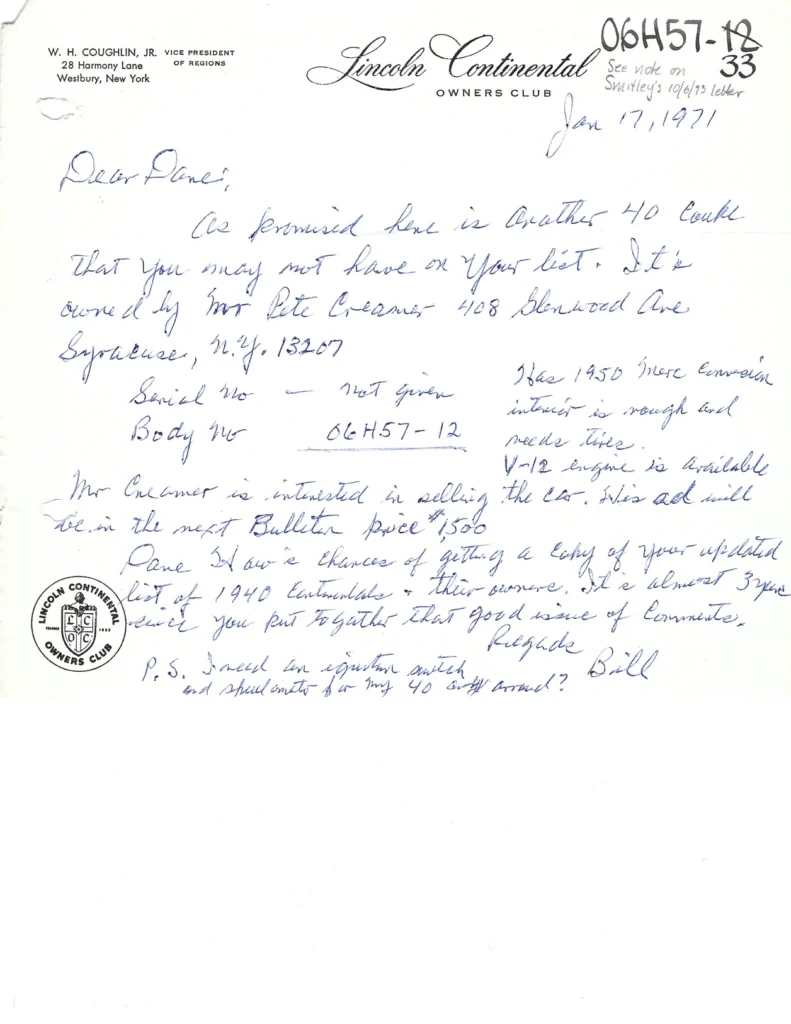 W. H. COUGHLIN, JR. VICE PRESIDENT OF REGIONS
28 Harmony Lane
Westbury, New York
Lincoln Continental
OWNERS CLUB
06H57-12
33
See note on
Smitley's 10/6/73 letter
Jan 17, 1971
Dear Dane,
As promised here is another 40 Coupe
that you may not have on your list. It's
owned by Mr Pete Creamer 408 Glenwood Ave
Syracuse, N.Y. 13207
Serial No — not given
Body No 06H57-12
Has 1950 Merc Conversion
interior is rough and
needs tires.
V-12 engine is available
Mr Creamer is interested in selling the car. His ad will
be in the next Bulletin price $1,500
Dane How's chances of getting a copy of your updated
list of 1940 Continentals + their owners. It's almost 3 years
since you put together that good issue of Comments.
Regards
Bill
P.S. I need an ignition switch
and speedometer for my 40 around?
LINCOLN CONTINENTAL
L C
O C
OWNERS CLUB